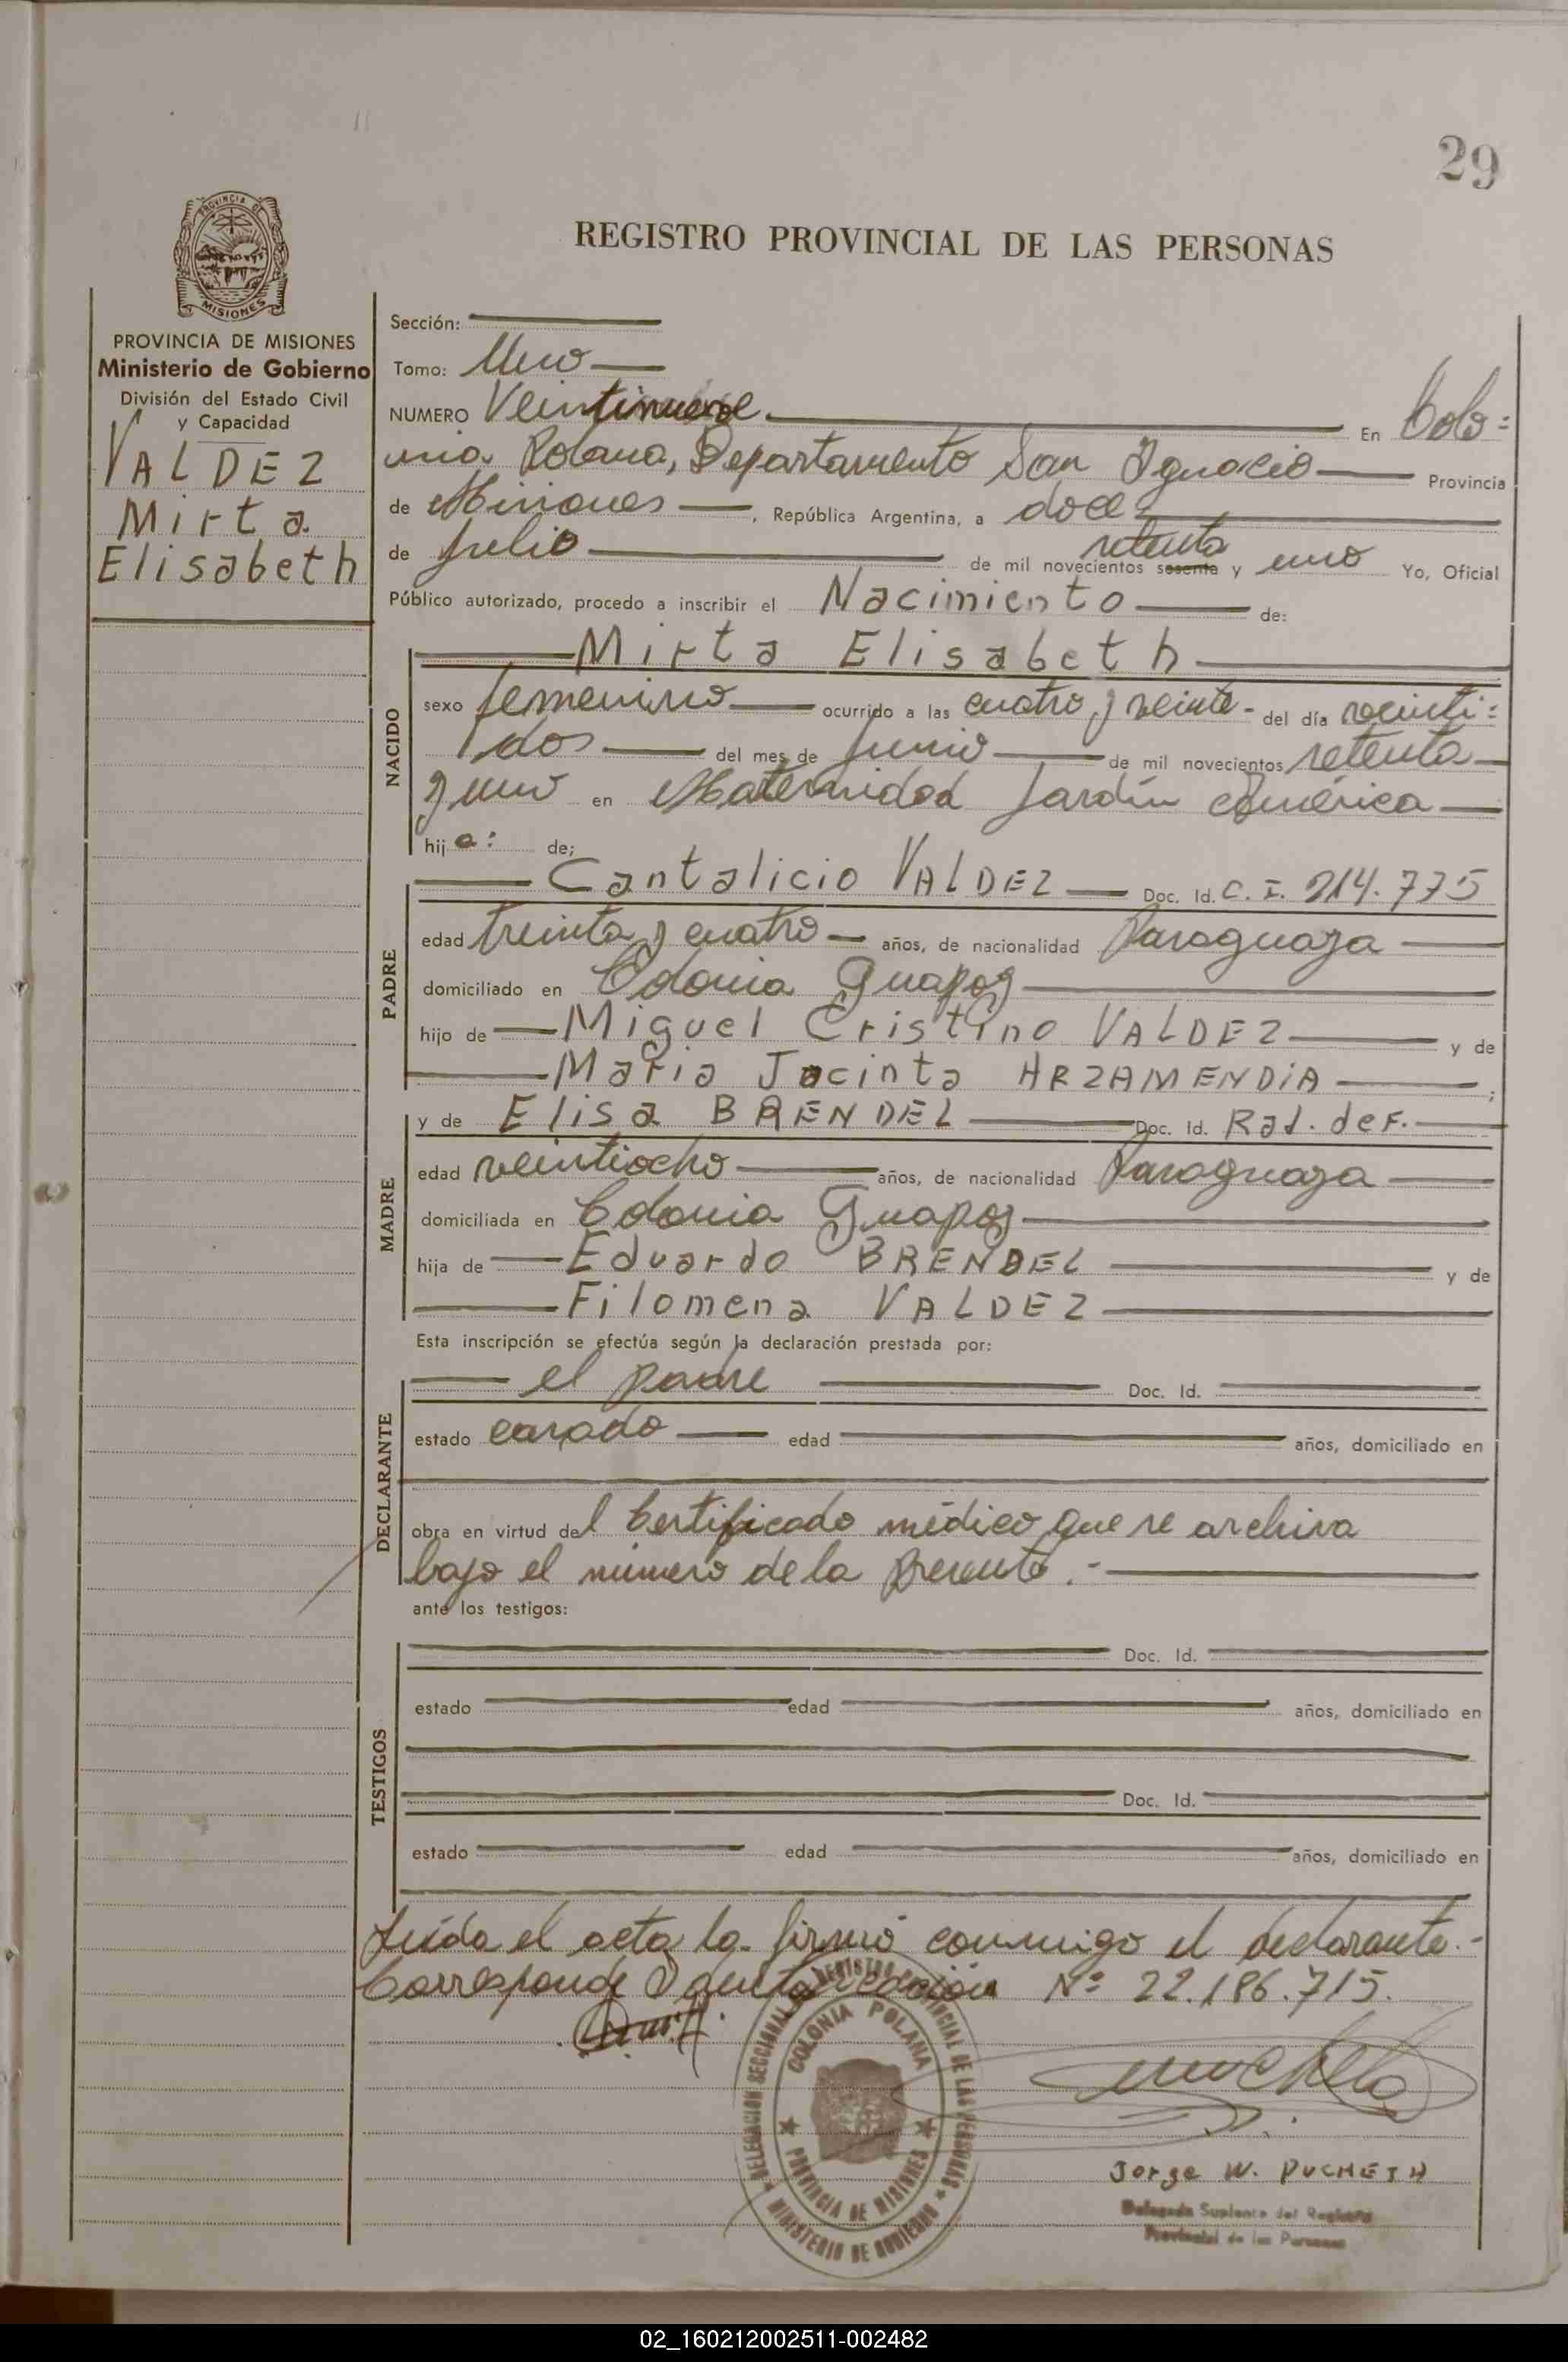 29
PROVINCIA DE
MISIONES
REGISTRO PROVINCIAL DE LAS PERSONAS
PROVINCIA DE MISIONES
Ministerio de Gobierno
División del Estado Civil
y Capacidad
VALDEZ
Mirta
Elisabeth
Sección:
Tomo: Uno
NUMERO Veintinueve. En Colo=
nia Polana, Departamento San Ignacio Provincia
de Misiones, República Argentina, a doce
de Julio de mil novecientos sesenta setenta y uno Yo, Oficial
Público autorizado, procedo a inscribir el Nacimiento de:
NACIDO
Mirta Elisabeth
sexo femenino ocurrido a las cuatro y veinte - del día veinti=
dos del mes de Junio de mil novecientos setenta
y uno en Maternidad Jardín América
hija: de;
PADRE
Cantalicio VALDEZ Doc. Id. C. I. 214.775
edad treinta y cuatro años, de nacionalidad Paraguaya
domiciliado en Colonia Guapoy
hijo de Miguel Cristino VALDEZ y de
Maria Jacinta ARZAMENDIA;
MADRE
y de Elisa BRENDEL Doc. Id. Rad. def.
edad veintiocho años, de nacionalidad Paraguaya
domiciliada en Colonia Guapoy
hija de Eduardo BRENDEL y de
Filomena VALDEZ
Esta inscripción se efectúa según la declaración prestada por:
DECLARANTE
el padre Doc. Id.
estado casado edad años, domiciliado en
obra en virtud del Certificado médico que se archiva
bajo el número de la presente.-
ante los testigos:
TESTIGOS
Doc. Id.
estado edad años, domiciliado en
Doc. Id.
estado edad años, domiciliado en
Leída el acta la firmó conmigo el declarante.-
Corresponde Identificación Nº 22.186.715.
DELEGACION SECCIONAL REGISTRO PROVINCIAL DE LAS PERSONAS
COLONIA POLANA
PROVINCIA DE MISIONES
MINISTERIO DE GOBIERNO
Jorge W. PUCHETA
Delegado Suplente del Registro
Provincial de las Personas
02_160212002511-002482